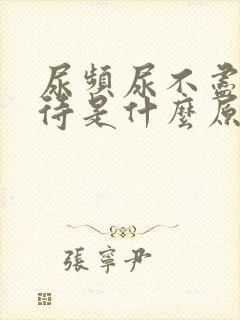 尿頻尿不盡
待是什麼原
張寧尹